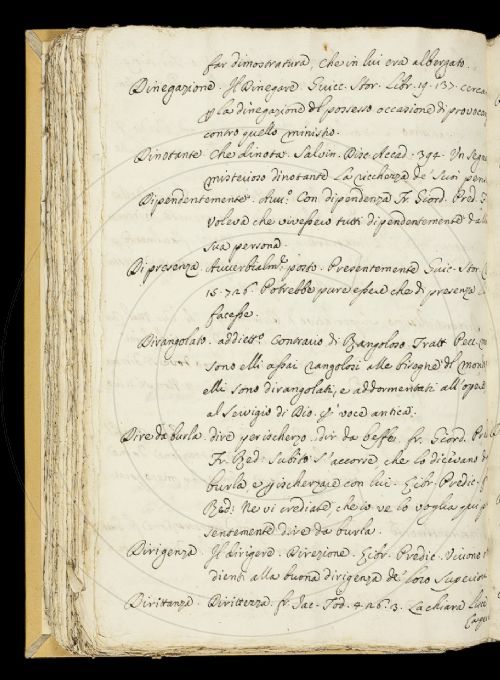 far dimostratura, che in lui era albergato.
Dinegazione. Il Dinegare Guicc. Stor. Libr. 19. 137. cerca
la dinegazione del possesso occasione di provocar
contro quello ministro.
Dinotante. Che dinota. Salvin. Disc. Accad. 394. Un segno
misterioso dinotante la ricchezza de' suoi
Dipendentemente. Avv.o Con dipendenza Fr. Giord. Pred.
voleva che vivessero tutti dipendentemente dalla
sua persona.
Di presenza. Avverbialm.e posto. Presentemente Guic. Stor.
15. 726. Potrebbe pure essere che di presenza
facesse.
Dirangolato. addiett.o Contrario di Rangoloso Tratt. Pecc.
sono elli assai rangolosi alle bisogne del mondo
elli sono dirangolati, e addormentati all'opere
al servigio di Dio. E' voce antica.
Dire da burla. dire per ischerzo. dir da beffe. fr. Giord. Pred.
Fr. Red. Subito s'accorse, che lo dicevano da
burla e per ischerzare con lui. Libr. Predic.
Red. Ne vi crediate che io ve lo voglia qui
sentemente dire da burla.
Dirigenza. Il dirigere. Direzione. Libr. Predic. Vivono
dienti alla buona dirigenza de' loro Superiori
Dirittanza. Dirittezza fr. Iac. Tod. 4. 26. 3. La chiara